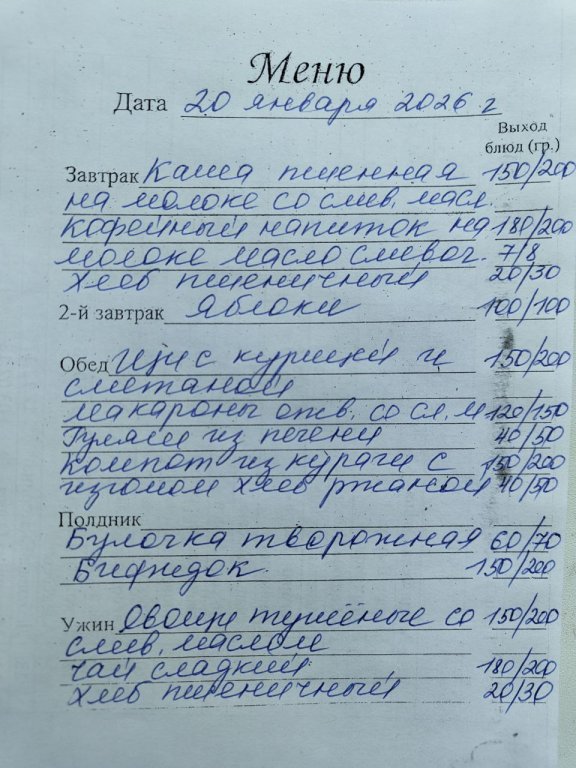 Меню
Дата 20 января 2026 г
Выход
блюд (гр.)
Завтрак Каша пшенная 150/200
на молоке со слив. масл.
кофейный напиток на 180/200
молоке масло сливоч. 7/8
хлеб пшеничный 20/30
2-й завтрак Яблоки 100/100
Обед Щи с курицей и 150/200
сметаной
макароны отв. со сл. м 120/150
Гуляш из печени 40/50
компот из кураги с 150/200
изюмом хлеб ржаной 40/50
Полдник
Булочка творожная 60/70
Бифидок 150/200
Ужин Овощи тушёные со 150/200
слив. маслом
чай сладкий 180/200
хлеб пшеничный 20/30